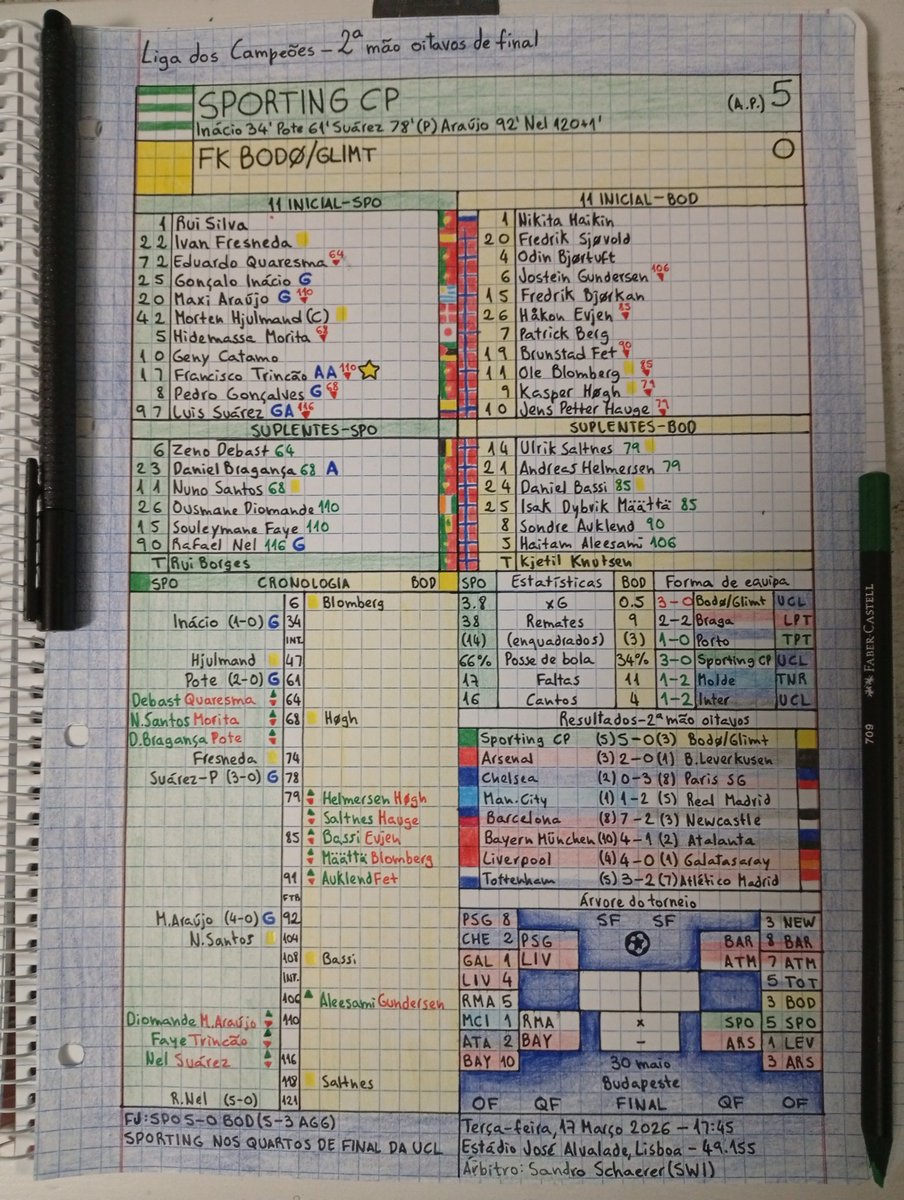 Liga dos Campeões – 2ª mão oitavos de final
SPORTING CP (A.P.) 5
Inácio 34' Pote 61' Suárez 78' (P) Araújo 92' Nel 120+1'
FK BODØ/GLIMT 0
11 INICIAL-SPO
1 Rui Silva
22 Ivan Fresneda
72 Eduardo Quaresma 64
25 Gonçalo Inácio G
20 Maxi Araújo G 110
42 Morten Hjulmand (C)
5 Hidemassa Morita 68
10 Geny Catamo
17 Francisco Trincão AA 110
8 Pedro Gonçalves G 68
97 Luis Suárez GA 116
SUPLENTES-SPO
6 Zeno Debast 64
23 Daniel Bragança 68 A
11 Nuno Santos 68
26 Ousmane Diomande 110
15 Souleymane Faye 110
90 Rafael Nel 116 G
T Rui Borges
11 INICIAL-BOD
1 Nikita Haikin
20 Fredrik Sjøvold
4 Odin Bjørtuft
6 Jostein Gundersen 106
15 Fredrik Bjørkan
26 Håkon Evjen 85
7 Patrick Berg
19 Brunstad Fet 90
11 Ole Blomberg 85
9 Kasper Høgh 79
10 Jens Petter Hauge 79
SUPLENTES-BOD
14 Ulrik Saltnes 79
21 Andreas Helmersen 79
24 Daniel Bassi 85
25 Isak Dybvik Määttä 85
8 Sondre Auklend 90
5 Haitam Aleesami 106
T Kjetil Knutsen
SPO CRONOLOGIA BOD
6 Blomberg
Inácio (1-0) G 34
INT.
Hjulmand 47
Pote (2-0) G 61
Debast Quaresma 64
N.Santos Morita 68 Høgh
D.Bragança Pote
Fresneda 74
Suárez-P (3-0) G 78
79 Helmersen Høgh
Saltnes Hauge
85 Bassi Evjen
Määttä Blomberg
91 Auklend Fet
FTB
M.Araújo (4-0) G 92
N.Santos 104
108 Bassi
INT.
106 Aleesami Gundersen
Diomande M.Araújo 110
Faye Trincão
Nel Suárez 116
118 Saltnes
R.Nel (5-0) 121
FJ: SPO 5-0 BOD (5-3 AGG)
SPORTING NOS QUARTOS DE FINAL DA UCL
SPO Estatísticas BOD
3.8 xG 0.5
38 Remates 9
(14) (enquadrados) (3)
66% Posse de bola 34%
17 Faltas 11
16 Cantos 4
Forma de equipa
3-0 Bodø/Glimt UCL
2-2 Braga LPT
1-0 Porto TPT
3-0 Sporting CP UCL
1-2 Molde TNR
1-2 Inter UCL
Resultados-2ª mão oitavos
Sporting CP (5) 5-0 (3) Bodø/Glimt
Arsenal (3) 2-0 (1) B.Leverkusen
Chelsea (2) 0-3 (8) Paris SG
Man.City (1) 1-2 (5) Real Madrid
Barcelona (8) 7-2 (3) Newcastle
Bayern München (10) 4-1 (2) Atalanta
Liverpool (4) 4-0 (1) Galatasaray
Tottenham (5) 3-2 (7) Atlético Madrid
Árvore do torneio
PSG 8 SF SF 3 NEW
CHE 2 PSG BAR 8 BAR
GAL 1 LIV ATM 7 ATM
LIV 4 5 TOT
RMA 5 3 BOD
MCI 1 RMA x SPO 5 SPO
ATA 2 BAY – ARS 1 LEV
BAY 10 30 maio 3 ARS
Budapeste
OF QF FINAL QF OF
Terça-feira, 17 Março 2026 – 17:45
Estádio José Alvalade, Lisboa – 49.155
Árbitro: Sandro Schaerer (SWI)
FABER-CASTELL
709